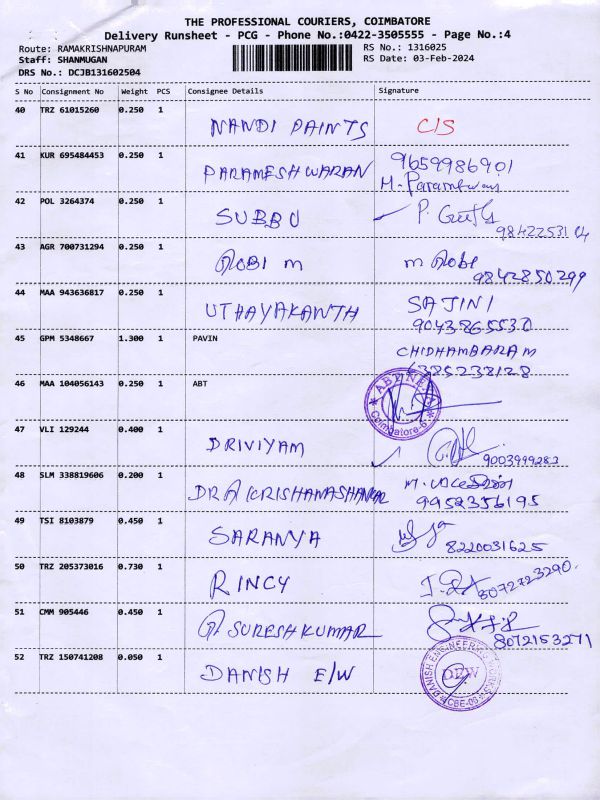 THE PROFESSIONAL COURIERS, COIMBATORE
Delivery Runsheet - PCG - Phone No.:0422-3505555 - Page No.:4
Route: RAMAKRISHNAPURAM RS No.: 1316025
Staff: SHANMUGAN RS Date: 03-Feb-2024
DRS No.: DCJB131602504
S No Consignment No Weight PCS Consignee Details Signature
40 TRZ 61015260 0.250 1 NANDI PAINTS C/S
41 KUR 695484453 0.250 1 PARAMESHWARAN 9659986901
M. Parameswaran
42 POL 3264374 0.250 1 SUBBU P.
43 AGR 700731294 0.250 1 ROBI M M Robi
9842850299
44 MAA 943636817 0.250 1 UTHAYAKANTH SAJINI
9043865530
45 GPM 5348667 1.300 1 PAVIN CHIDHAMBARAM
6385238128
46 MAA 104056143 0.250 1 ABT
Coimbatore-6
47 VLI 129244 0.400 1 DRIVIYAM
9003999283
48 SLM 338819606 0.200 1 DR A KRISHANASHANKAR M.
9952356195
49 TSI 8103879 0.450 1 SARANYA
8220031625
50 TRZ 205373016 0.730 1 RINCY
8072723290
51 CMM 905446 0.450 1 G. SURESH KUMAR
8072153271
52 TRZ 150741208 0.050 1 DANISH E/W
DANISH ENGINEERING WORKS
DEW